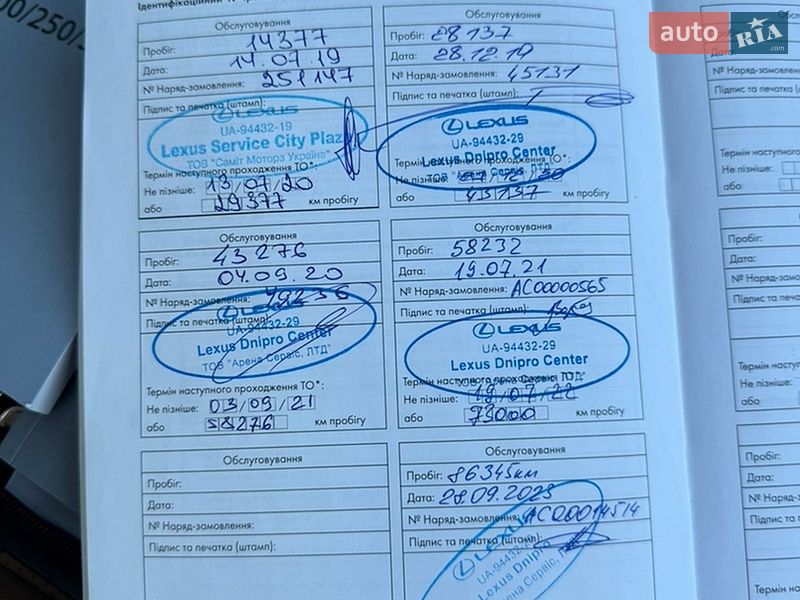 00/250/
Ідентифікаційний
auto RIA .com
Обслуговування
Пробіг: 14377
Дата: 14.07.19
№ Наряд-замовлення: 251147
Підпис та печатка (штамп):
LEXUS
UA-94432-19
Lexus Service City Plaz
ТОВ "Саміт Моторз Україна"
Термін наступного проходження ТО*:
Не пізніше: 13/07/20
або 29377 км пробігу
Обслуговування
Пробіг: 28137
Дата: 28.12.19
№ Наряд-замовлення: 45131
Підпис та печатка (штамп):
LEXUS
UA-94432-29
Lexus Dnipro Center
ТОВ "Арена Сервіс, ЛТД"
Термін наступного проходження ТО*:
Не пізніше: 27/12/20
або 43137 км пробігу
Обслуговування
Пробіг: 43276
Дата: 04.09.20
№ Наряд-замовлення: 49236
Підпис та печатка (штамп):
LEXUS
UA-94432-29
Lexus Dnipro Center
ТОВ "Арена Сервіс, ЛТД"
Термін наступного проходження ТО*:
Не пізніше: 03/09/21
або 58276 км пробігу
Обслуговування
Пробіг: 58232
Дата: 19.07.21
№ Наряд-замовлення: АС00000565
Підпис та печатка (штамп):
LEXUS
UA-94432-29
Lexus Dnipro Center
Термін наступного проходження ТО*:
Не пізніше: 19/07/22
або 73000 км пробігу
Обслуговування
Пробіг:
Дата:
№ Наряд-замовлення:
Підпис та печатка (штамп):
Обслуговування
Пробіг: 86345км
Дата: 28.09.2023
№ Наряд-замовлення: АС00014514
Підпис та печатка (штамп):
LEXUS
UA-94432-
Lexus Dnipro
Арена Сервіс,
№ Наряд-замовл
Підпис та печат
Термін наступно
Не пізніше:
або
Пробіг:
Дата:
№ Наряд-замов
Підпис та печат
Термін наступн
Не пізніше:
або
Пробіг:
Дата:
№ Наряд-
Підпис та п
Термін н